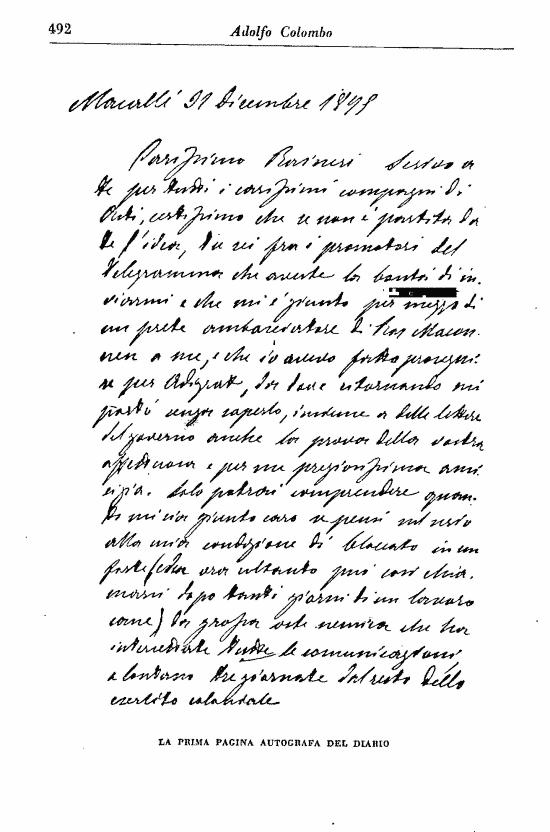 492
Adolfo Colombo
Macallè 31 Dicembre 1895
Carissimo Raineri Scrivo a
te per tutti i carissimi compagni di
certissimo che se non è partita da
te l'idea, tu sei fra i promotori del
telegramma che aveste la bontà di in.
viarmi e che mi è giunto per mezzo di
un prete ambasciatore di Ras Macon.
nen a me, e che io avevo fatto prosegui.
re per Adigrat, da dove ritornando mi
portò senza saperlo, insieme a delle lettere
del governo anche la prova della vostra
affettuosa e per me preziosissima ami.
cizia. Solo potrai comprendere quan.
to mi sia giunto caro se pensi nel
alla mia condizione di bloccato in un
forte (che ora soltanto può così chia.
marsi dopo tanti giorni di un lavoro
cane) da grossa oste nemica che ha
intercettate tutte le comunicazioni
e lontano tre giornate dal resto dello
esercito coloniale
LA PRIMA PAGINA AUTOGRAFA DEL DIARIO